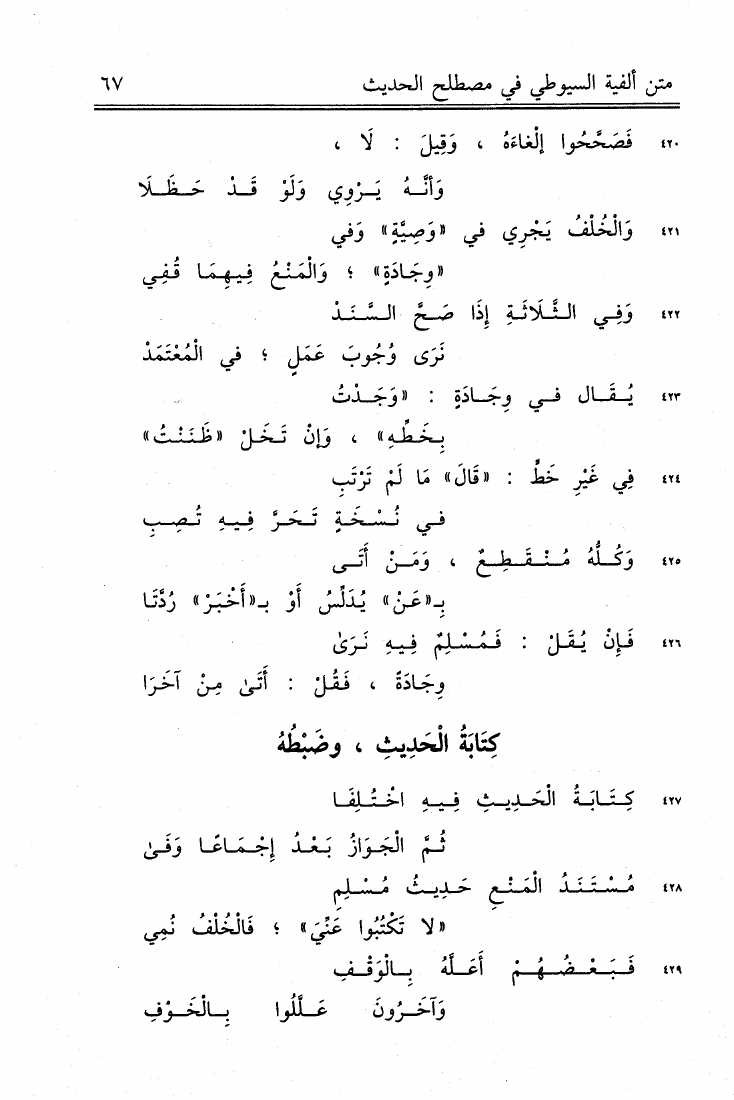 متن ألفية السيوطي في مصطلح الحديث ٦٧
٤٢٠ فَصَحَّحُوا إِلْغَاءَهُ ، وَقِيلَ : لَا ،
وَأَنَّهُ يَرْوِي وَلَوْ قَدْ حَظَلَا
٤٢١ وَالْخُلْفُ يَجْرِي في «وَصِيَّةٍ» وَفي
«وِجَادَةٍ» ؛ وَالْمَنْعُ فِيهِمَا قُفِي
٤٢٢ وَفِي الثَّلَاثَةِ إِذَا صَحَّ السَّنَدْ
نَرَى وُجُوبَ عَمَلٍ ؛ في الْمُعْتَمَدْ
٤٢٣ يُقَالُ فِي وِجَادَةٍ : «وَجَدْتُ
بِخَطِّهِ» ، وَإِنْ تَخَلْ «ظَنَنْتُ»
٤٢٤ فِي غَيْرِ خَطٍّ : «قَالَ» مَا لَمْ تَرْتَبِ
فِي نُسْخَةٍ تَحَرَّ فِيهِ تُصِبِ
٤٢٥ وَكُلُّهُ مُنْقَطِعٌ ، وَمَنْ أَتَى
بِـ«عَنْ» يُدَلِّسُ أَوْ بِـ«أَخْبَرْ» رُدَّتَا
٤٢٦ فَإِنْ يُقَلْ : فَمُسْلِمٌ فِيهِ نَرَىٰ
وِجَادَةً ، فَقُلْ : أَتَىٰ مِنْ آخَرَا
كِتَابَةُ الْحَدِيثِ ، وضَبْطُهُ
٤٢٧ كِتَابَةُ الْحَدِيثِ فِيهِ اخْتُلِفَا
ثُمَّ الْجَوَازُ بَعْدُ إِجْمَاعًا وَفَىٰ
٤٢٨ مُسْتَنَدُ الْمَنْعِ حَدِيثُ مُسْلِمِ
«لا تَكْتُبُوا عَنِّيَ» ؛ فَالْخُلْفُ نُمِي
٤٢٩ فَبَعْضُهُمْ أَعَلَّهُ بِالْوَقْفِ
وَآخَرُونَ عَلَّلُوا بِالْخَوْفِ